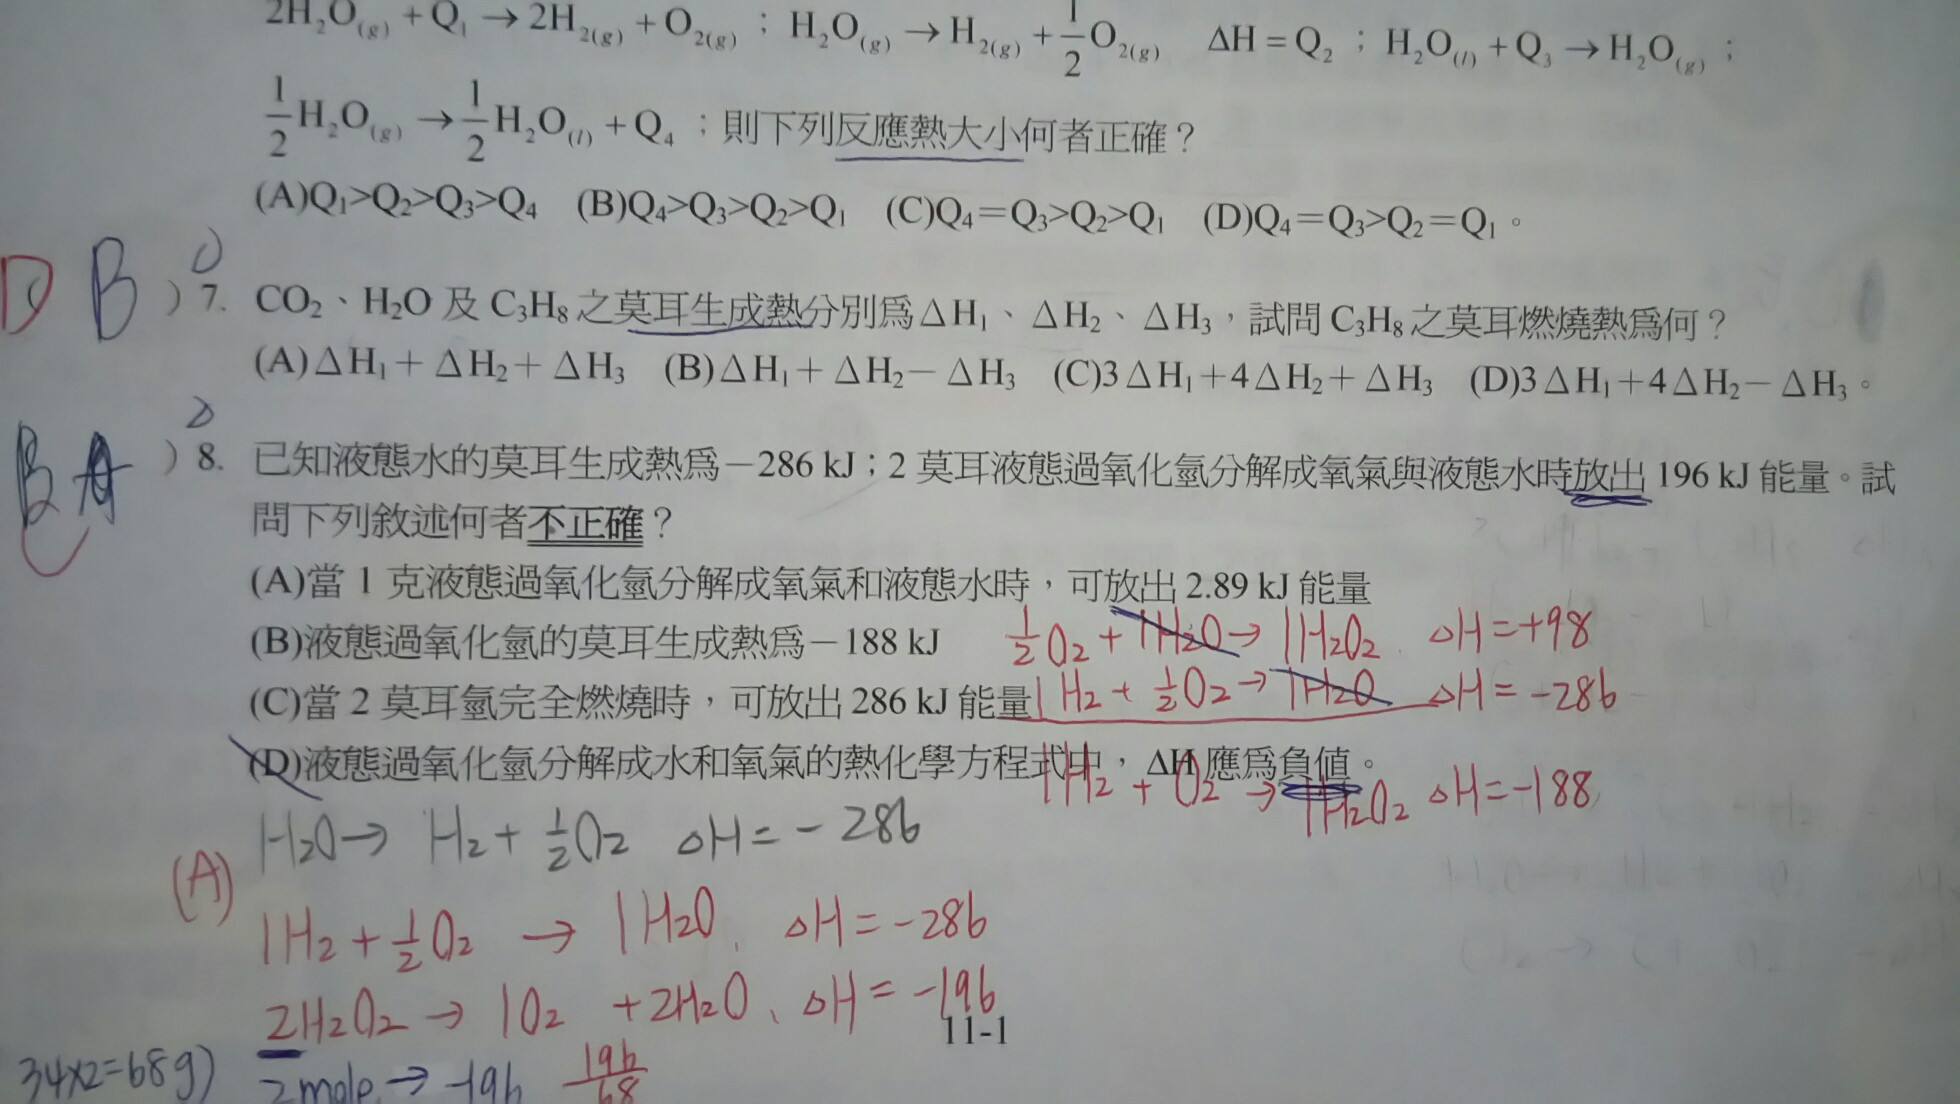 2H₂O(g) + Q₁ → 2H₂(g) + O₂(g) ; H₂O(g) → H₂(g) + 1/2 O₂(g) ΔH = Q₂ ; H₂O(l) + Q₃ → H₂O(g) ;
1/2 H₂O(g) → 1/2 H₂O(l) + Q₄ ;則下列反應熱大小何者正確?
(A)Q₁>Q₂>Q₃>Q₄ (B)Q₄>Q₃>Q₂>Q₁ (C)Q₄=Q₃>Q₂>Q₁ (D)Q₄=Q₃>Q₂=Q₁。
D B )7. CO₂、H₂O 及 C₃H₈之莫耳生成熱分別為△H₁、△H₂、△H₃,試問 C₃H₈之莫耳燃燒熱為何?
(A)△H₁+△H₂+△H₃ (B)△H₁+△H₂-△H₃ (C)3△H₁+4△H₂+△H₃ (D)3△H₁+4△H₂-△H₃。
B A )8. 已知液態水的莫耳生成熱為-286 kJ;2 莫耳液態過氧化氫分解成氧氣與液態水時放出 196 kJ 能量。試
C 問下列敘述何者不正確?
(A)當 1 克液態過氧化氫分解成氧氣和液態水時,可放出 2.89 kJ 能量
(B)液態過氧化氫的莫耳生成熱為-188 kJ
1/2 O₂ + 1H₂O → 1H₂O₂ △H=+98
(C)當 2 莫耳氫完全燃燒時,可放出 286 kJ 能量
1H₂ + 1/2 O₂ → 1H₂O △H=-286
(D)液態過氧化氫分解成水和氧氣的熱化學方程式中,ΔH 應為負值。
1H₂ + O₂ → 1H₂O₂ △H=-188
H₂O → H₂ + 1/2 O₂ △H=-286
(A)
1H₂ + 1/2 O₂ → 1H₂O、△H=-286
2H₂O₂ → 1O₂ + 2H₂O、△H=-196
11-1
34×2=68g) 2mole → -196 196/68